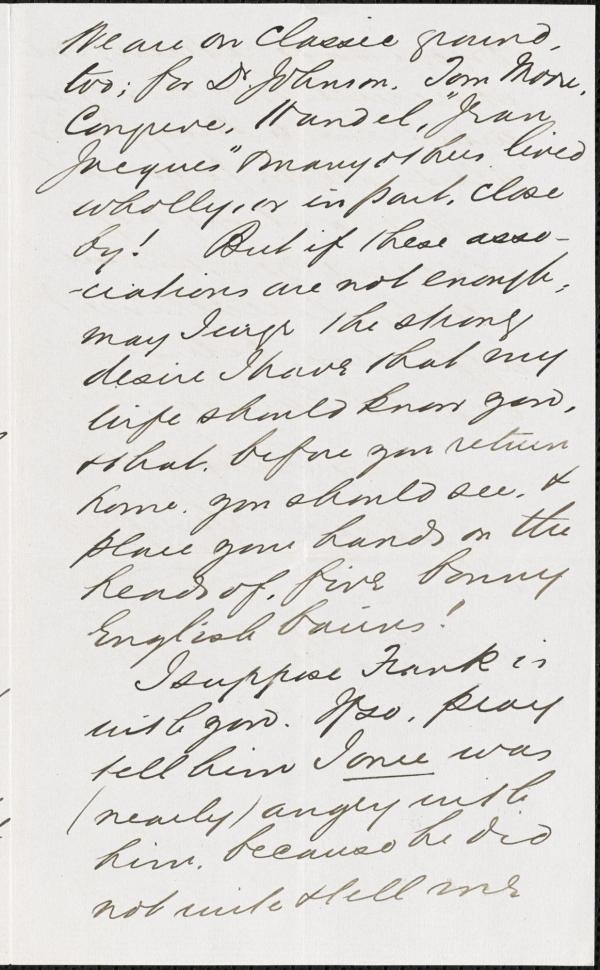 We are on classic ground,
too; for Dr. Johnson. Tom Moore,
Congreve, Handel, "Jean
Jacques" & many others lived
wholly, or in part, close
by! But if these asso-
-ciations are not enough,
may I urge the strong
desire I have that my
wife should know you,
& that, before you return
home. you should see, &
place your hands on the
heads of, five bonny
English bairns!
I suppose Frank is
with you. If so, pray
tell him I once was
(nearly) angry with
him, because he did
not write & tell me